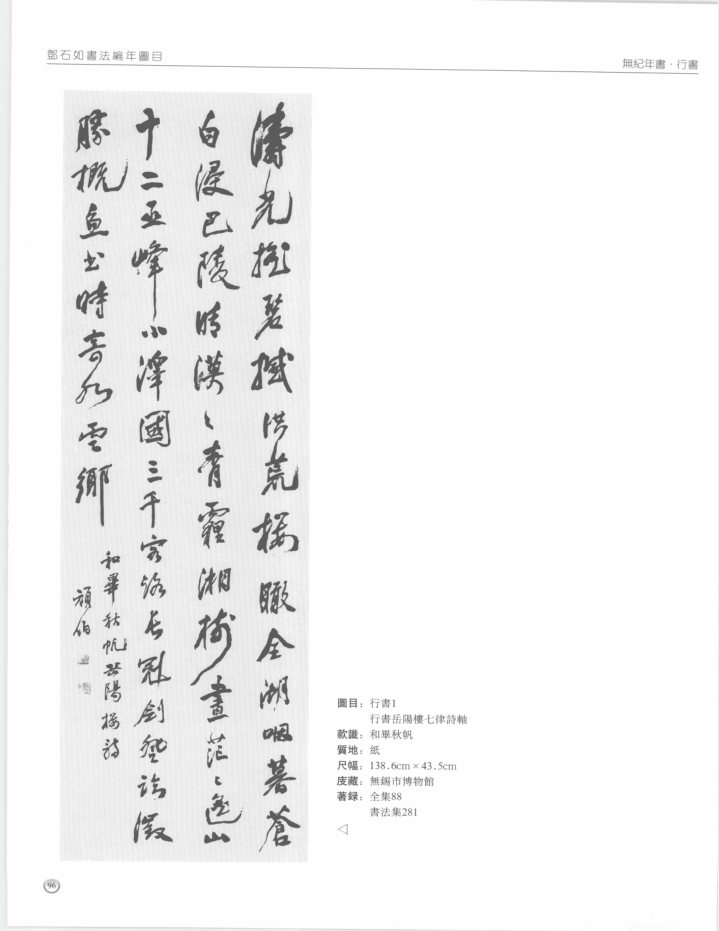 鄧石如書法編年圖目
無紀年書·行書
濤光搖碧撼洪荒樓瞰全湖咽暮蒼
白浸巴陵晴漠〻青霾湘樹晝茫〻遙山
十二巫峰小澤國三千客路長冠劍登臨澂
勝概魚書時寄水雲鄉
和畢秋帆岳陽樓詩
頑伯
圖目：行書1
行書岳陽樓七律詩軸
款識：和畢秋帆
質地：紙
尺幅：138.6cm×43.5cm
庋藏：無錫市博物館
著録：全集88
書法集281
96